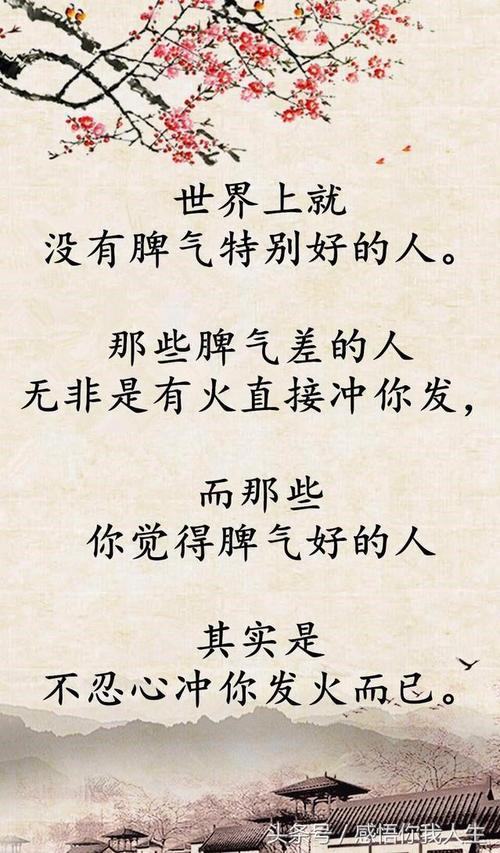 世界上就
没有脾气特别好的人。
那些脾气差的人
无非是有火直接冲你发，
而那些
你觉得脾气好的人
其实是
不忍心冲你发火而已。
头条号 / 感悟你我人生